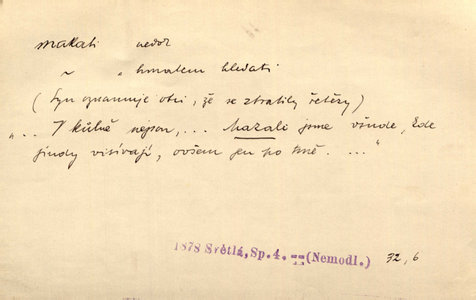 makati nedok
~ „ hmatem hledati
(Syn oznamuje otci, že se ztratily řetězy)
„... V kůlně nejsou, ... Makali jsme všude, kde
jindy visívají, ovšem jen po tmě. ...“
1878 Světlá, Sp. 4. -- (Nemodl.) 32, 6